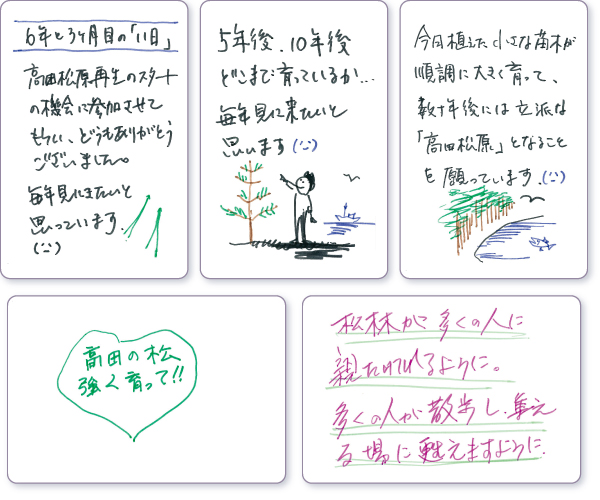 6年と3ヶ月目の「11日」
高田松原再生のスタート
の機会に参加させて
もらい、どうもありがとう
ございました。
毎年見にきたいと
思っています.
5年後、10年後
どこまで育っているか...
毎年見に来たいと
思います
今日植えた小さな苗木が
順調に大きく育って、
数十年後には立派な
「高田松原」となること
を願っています.
高田の松
強く育って!!
松林が多くの人に
親しまれるように。
多くの人が散歩し、集え
る場に甦えますように.